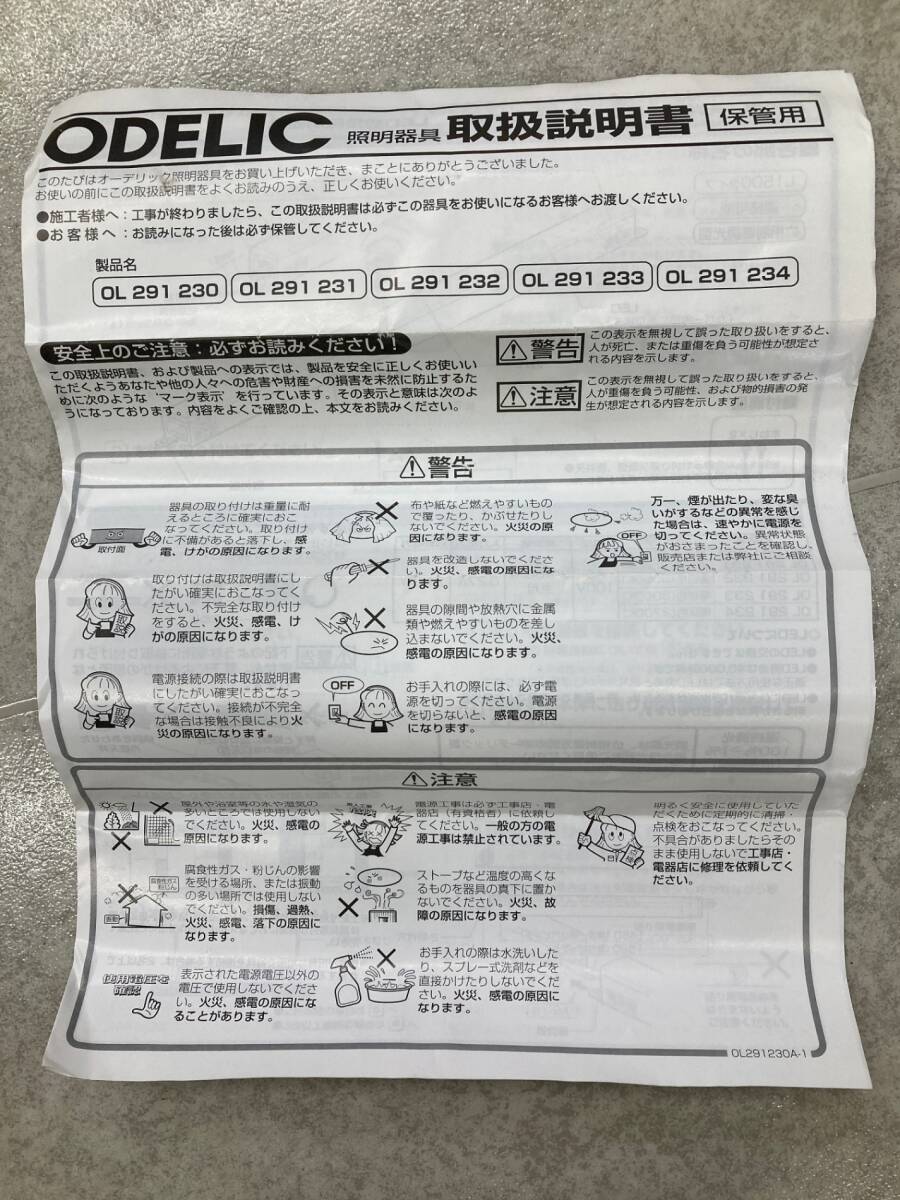 ODELIC 照明器具 取扱説明書 保管用
このたびはオーデリック照明器具をお買い上げいただき、まことにありがとうございました。
お使いの前にこの取扱説明書をよくお読みのうえ、正しくお使いください。
●施工者様へ：工事が終わりましたら、この取扱説明書は必ずこの器具をお使いになるお客様へお渡しください。
●お客様へ：お読みになった後は必ず保管してください。
製品名
OL 291 230 OL 291 231 OL 291 232 OL 291 233 OL 291 234
安全上のご注意：必ずお読みください！
この取扱説明書、および製品への表示では、製品を安全に正しくお使いい
ただくようあなたや他の人々への危害や財産への損害を未然に防止するた
めに次のような“マーク表示”を行っています。その表示と意味は次のよ
うになっております。内容をよくご確認の上、本文をお読みください。
⚠警告
この表示を無視して誤った取り扱いをすると、
人が死亡、または重傷を負う可能性が想定さ
れる内容を示します。
⚠注意
この表示を無視して誤った取り扱いをすると、
人が傷害を負う可能性、および物的損害の発
生が想定される内容を示します。
⚠警告
取付面
器具の取り付けは重量に耐
えるところに確実におこ
なってください。取り付け
に不備があると落下し、感
電、けがの原因になります。
取説
取り付けは取扱説明書にし
たがい確実におこなってく
ださい。不完全な取り付け
をすると、火災、感電、け
がの原因になります。
取説
電源接続の際は取扱説明書
にしたがい確実におこなっ
てください。接続が不完全
な場合は接触不良により火
災の原因になります。
布や紙など燃えやすいもの
で覆ったり、かぶせたりし
ないでください。火災の原
因になります。
器具を改造しないでくださ
い。火災、感電の原因にな
ります。
器具の隙間や放熱穴に金属
類や燃えやすいものを差し
込まないでください。火災、
感電の原因になります。
OFF
お手入れの際には、必ず電
源を切ってください。電源
を切らないと、感電の原因
になります。
OFF
万一、煙が出たり、変な臭
いがするなどの異常を感じ
た場合は、速やかに電源を
切ってください。異常状態
がおさまったことを確認し、
販売店または弊社にご相談
ください。
⚠注意
屋外や浴室等の水や湿気の
多いところでは使用しない
でください。火災、感電の
原因になります。
腐食性ガス
粉じん
振動
腐食性ガス・粉じんの影響
を受ける場所、または振動
の多い場所では使用しない
でください。損傷、過熱、
火災、感電、落下の原因に
なります。
使用電圧を
確認
表示された電源電圧以外の
電圧で使用しないでくださ
い。火災、感電の原因にな
ることがあります。
電源工事は必ず工事店・電
器店（有資格者）に依頼し
てください。一般の方の電
源工事は禁止されています。
ストーブなど温度の高くな
るものを器具の真下に置か
ないでください。火災、故
障の原因になります。
お手入れの際は水洗いした
り、スプレー式洗剤などを
直接かけたりしないでくだ
さい。火災、感電の原因に
なります。
点検
明るく安全に使用していた
だくために定期的に清掃・
点検をおこなってください。
不具合がありましたらその
まま使用しないで工事店・
電器店に修理を依頼してく
ださい。
OL291230A-1